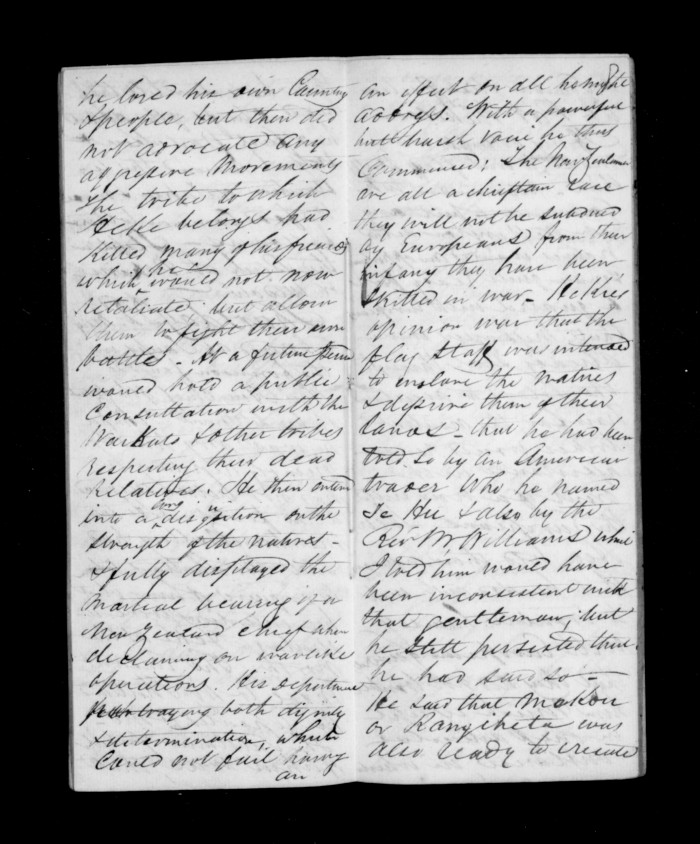 he loved his own Country
& people, but then did
not advocate any
aggressive movements
The tribe to which
Hekke belongs had
killed many of his friends
which he would not now
retaliate but allow
them to fight their own
battles - At a future
would hold a public
Consultation with the
Waikato & other tribes
respecting their dead
relatives. He then entered
into a long disquisition on the
strength of the natives -
& fully displayed the
martial bearing of a
New Zealand chief when
declaiming on warlike
operations. His deportment
both dignity
& determination, which
could not fail having
an
an effect on all he might
address. With a powerful
but harsh voice he thus
Commenced; The New Zealanders
are all a chieftain race
they will not be subdued
by Europeans from their
infancy they have been
skilled in war - Hekke's
opinion was that the
flag staff was intended
to enslave the natives
& deprive them of their
lands - that he had been
told so by an American
trader who he named
Te Hu & also by the
Revd W. Williams which
I told him would have
been inconsistent with
that gentleman; but
he still persisted that
he had said so -
He said that
or Rangiheta was
also ready to create